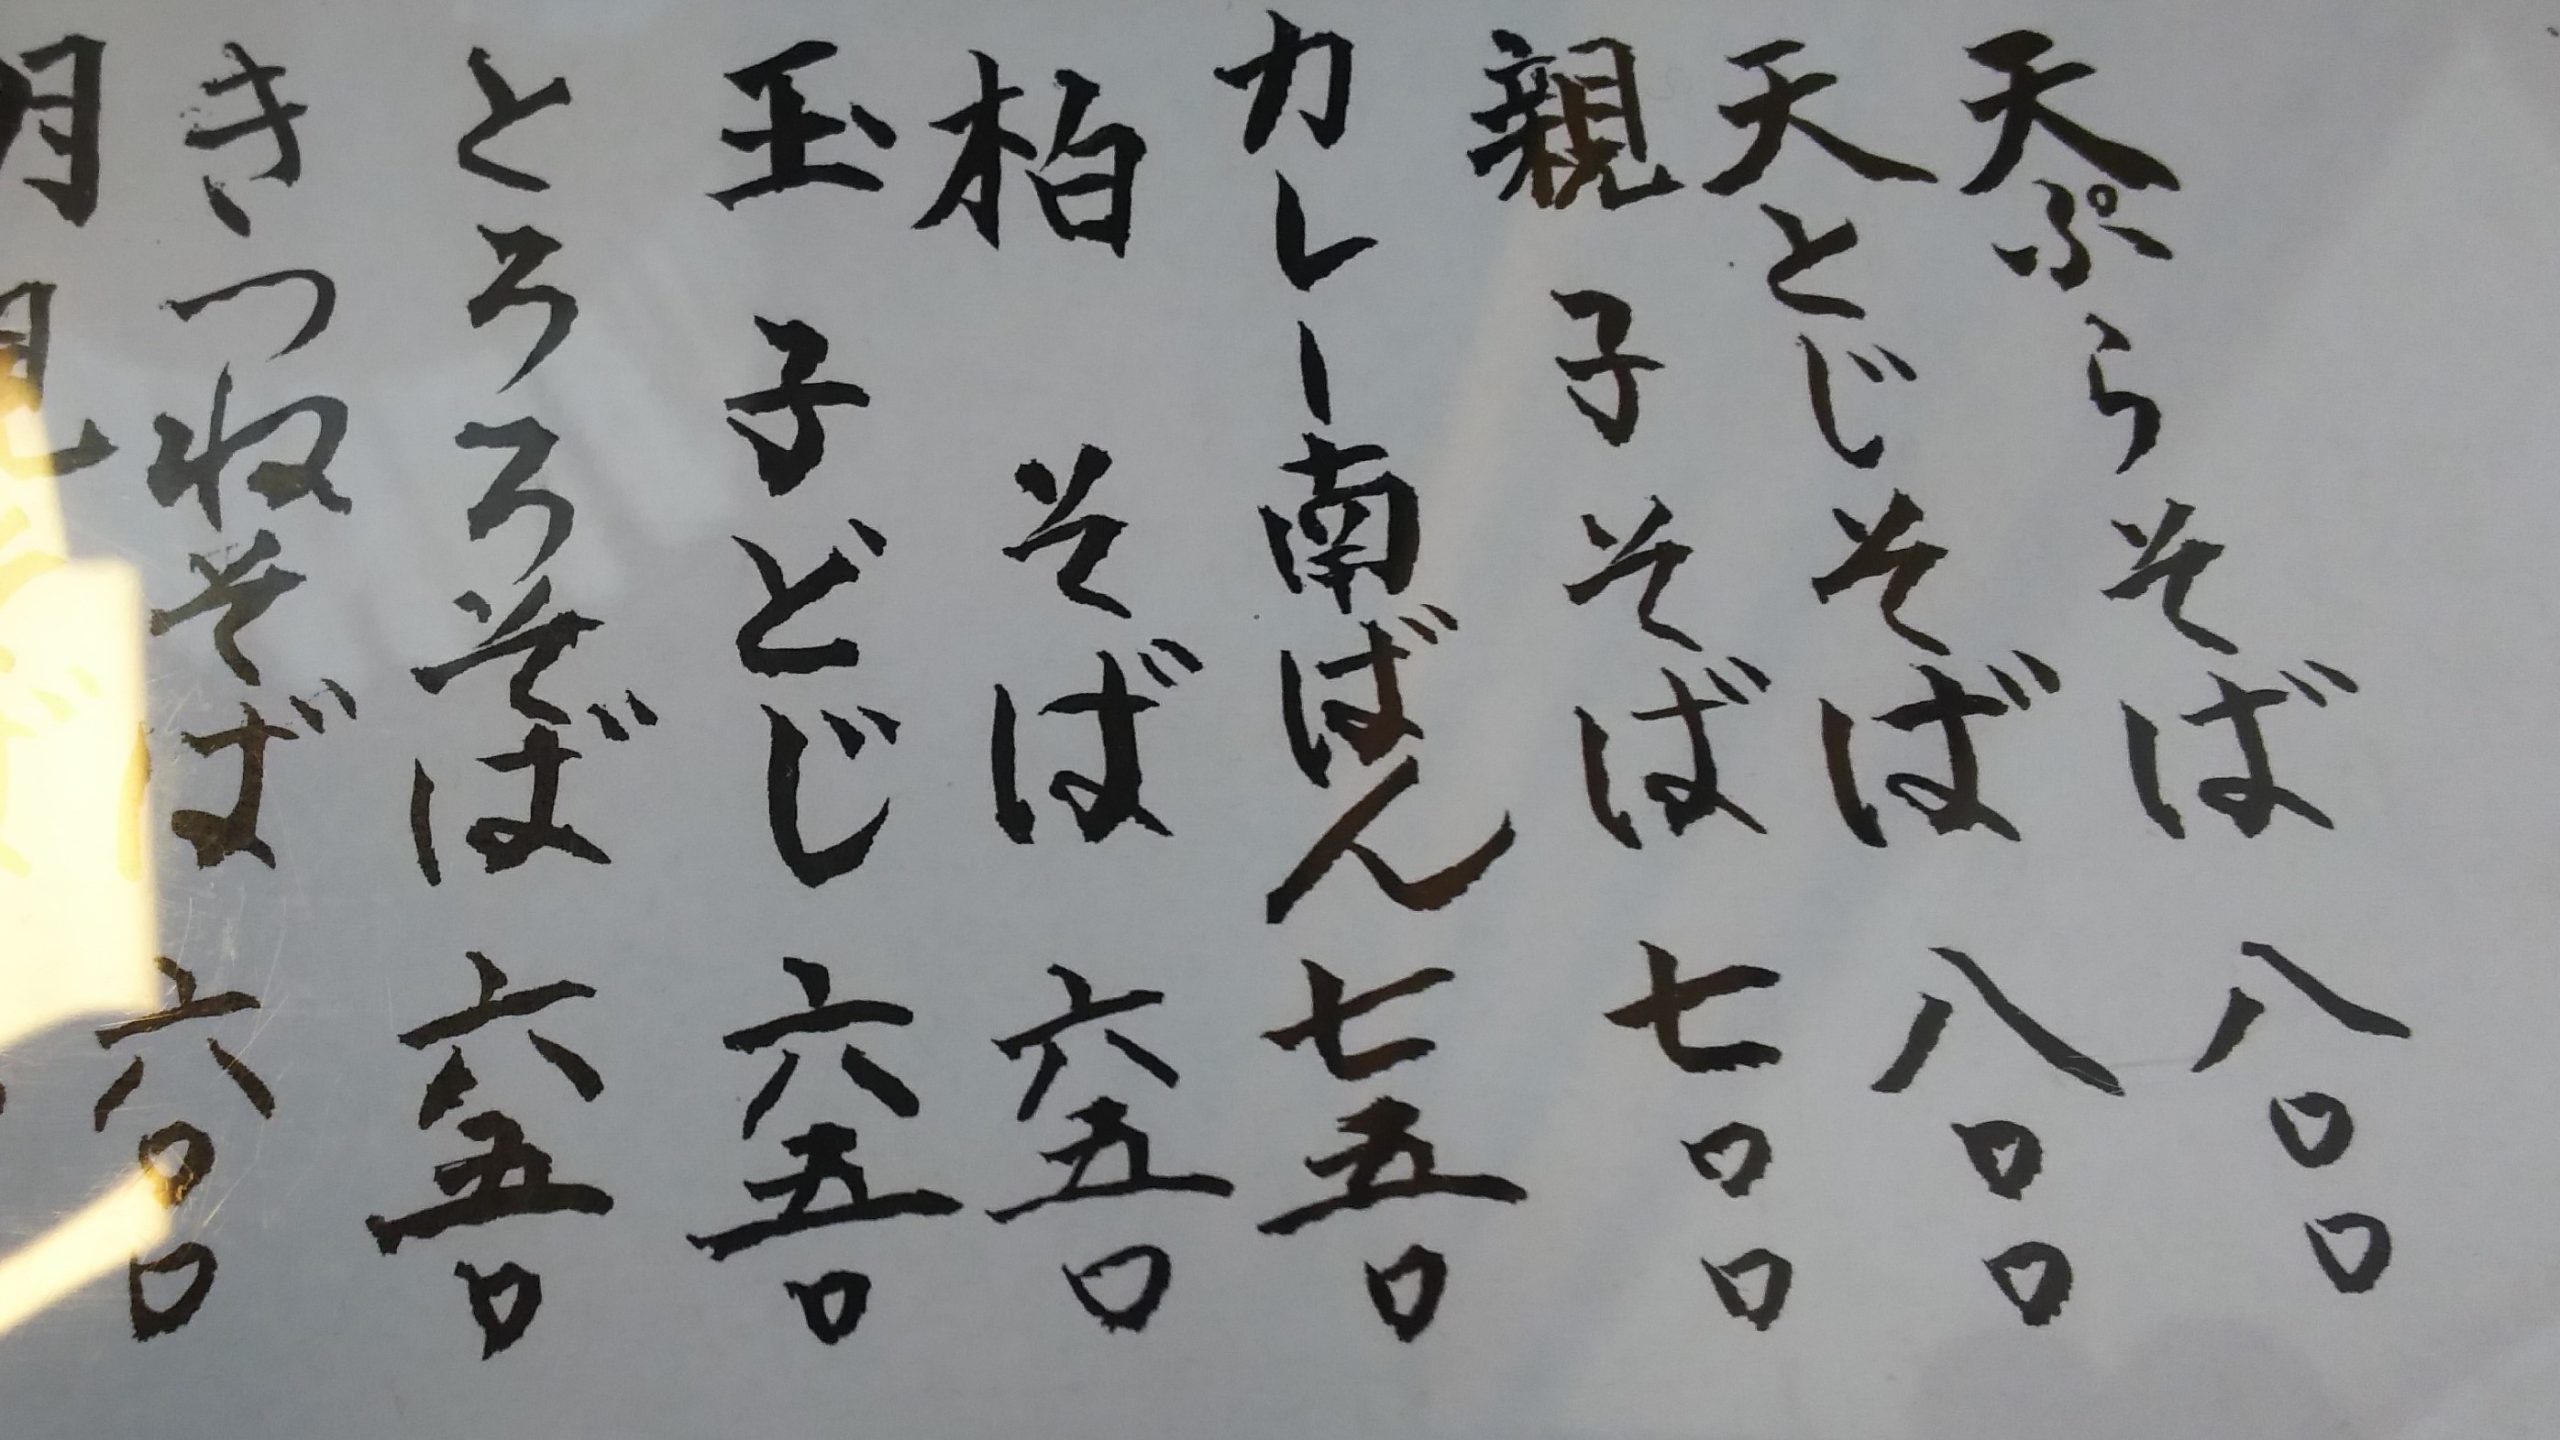 天ぷらそば 八〇〇
天とじそば 八〇〇
親子そば 七〇〇
カレー南ばん 七五〇
柏そば 六五〇
玉子どじ 六五〇
とろろそば 六五〇
きつねそば 六〇〇
月見